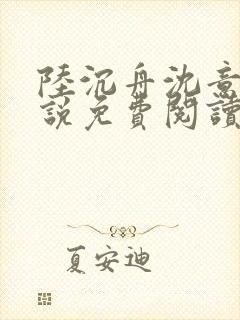 陸沉舟沈意
說免費閱讀
夏安迪